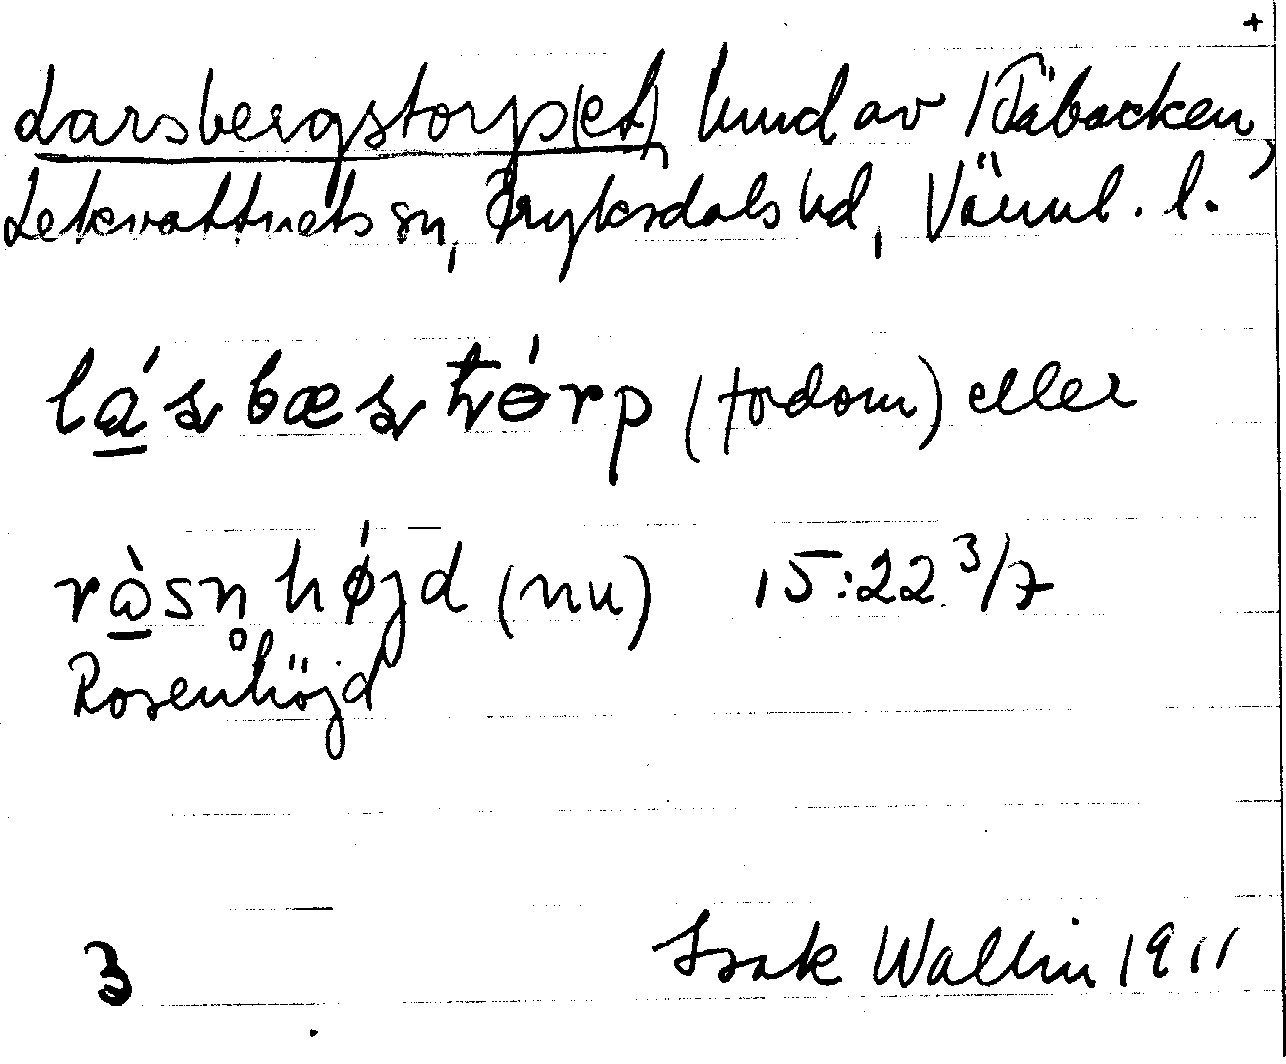 +
Larsbergstorp(et) hmd av 1 Fäbacken,
Lekvattnets sn, Fryksdals hd, Värml. l.
lásbæstórp (fordom) eller
ràsn̥højd (nu) 15:22 3/7
Rosenhöjd
3 Isak Wallin 1911